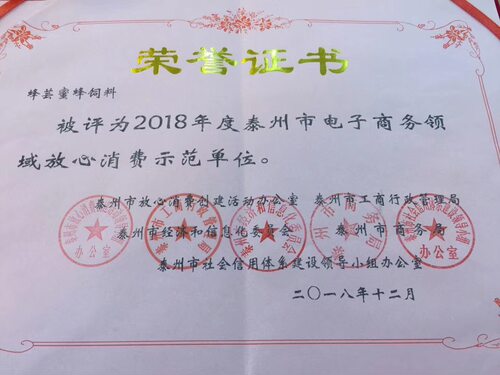 荣誉证书
蜂芸蜜蜂饲料
被评为2018年度泰州市电子商务领
域放心消费示范单位。
泰州市放心消费创建活动办公室 泰州市工商行政管理局
泰州市经济和信息化委员会 泰州市商务局
泰州市社会信用体系建设领导小组办公室
办公室
办公室
二〇一八年十二月